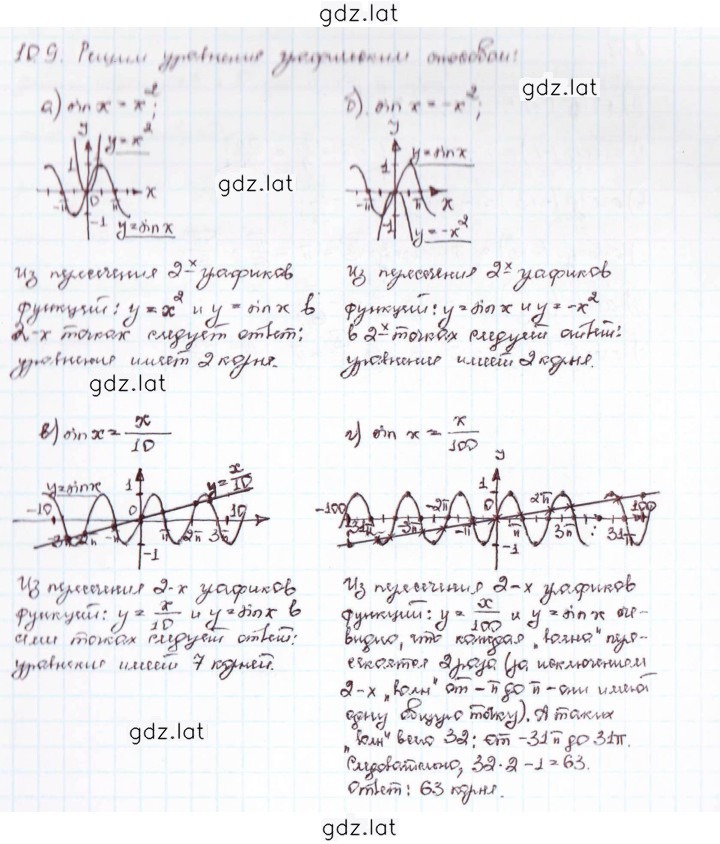 gdz.lat
10.9. Решим уравнение графическим способом:
gdz.lat
а) sin x = x²;
б) sin x = -x²;
y y = x²
1
gdz.lat
-π 0 π x
-1 y = sin x
y y = sin x
1
-π π x
-1 y = -x²
Из пересечения 2-х графиков
функций: y = x² и y = sin x в
2-х точках следует ответ:
уравнение имеет 2 корня.
Из пересечения 2-х графиков
функций: y = sin x и y = -x²
в 2-х точках следует ответ:
уравнение имеет 2 корня.
gdz.lat
в) sin x = x/10
г) sin x = x/100
y = sin x 1 y = x/10
-10 0 10
3π 2π -π π 2π 3π
-1
y
-100 -2π 1 0 2π 100
31π -3π -π π 3π 31π
-1
Из пересечения 2-х графиков
функций: y = x/10 и y = sin x в
семи точках следует ответ:
уравнение имеет 7 корней.
gdz.lat
Из пересечения 2-х графиков
функций: y = x/100 и y = sin x оче-
видно, что каждая „волна“ пере-
секается 2 раза (за исключением
2-х „волн“ от -π до π - они имеют
одну общую точку). А таких
„волн“ всего 32: от -31π до 31π.
Следовательно, 32·2-1=63.
Ответ: 63 корня.
gdz.lat